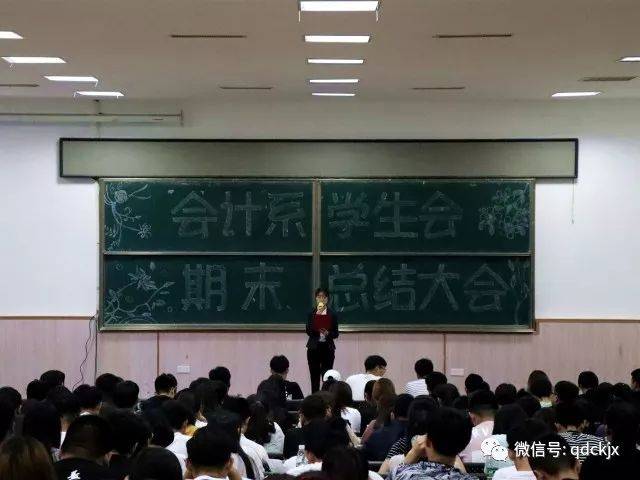 会计系学生会
期末总结大会
微信号: qdckjx